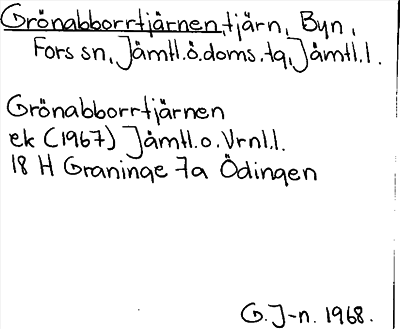 Grönabborrtjärnen, tjärn, Byn,
Fors sn, Jämtl.ö.doms.tg, Jämtl.l.
Grönabborrtjärnen
ek (1967) Jämtl.o.Vrnl.l.
18 H Graninge 7a Ödingen
G.J-n. 1968.